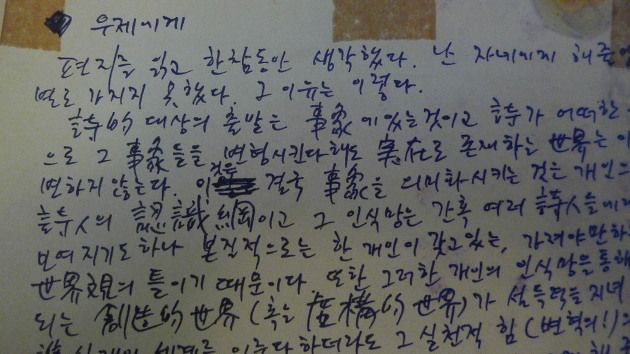 우제에게
편지를 읽고 한참동안 생각했다. 난 자네에게 해준
별로 가지지 못했다. 그 이유는 이렇다.
詩的 대상의 출발은 事象에 있는 것이고 詩가 어떠한
으로 그 事象들을 변형시킨다해도 実在로 존재하는 世界는
변하지 않는다. 이것은 결국 事象을 의미화시키는 것은 개인의
詩人의 認識網이고 그 인식망은 간혹 여러 詩人들에게
보여지기도 하나 본질적으로는 한 개인이 갖고있는, 가져야만하
世界観의 틀이기 때문이다. 또한 그러한 개인의 인식망을 통해
되는 創造的 世界 (혹은 虛構的 世界)가 설득력을 지녀
세계를 이룬다 하더라도 그 실천적 함(변혁의!)의